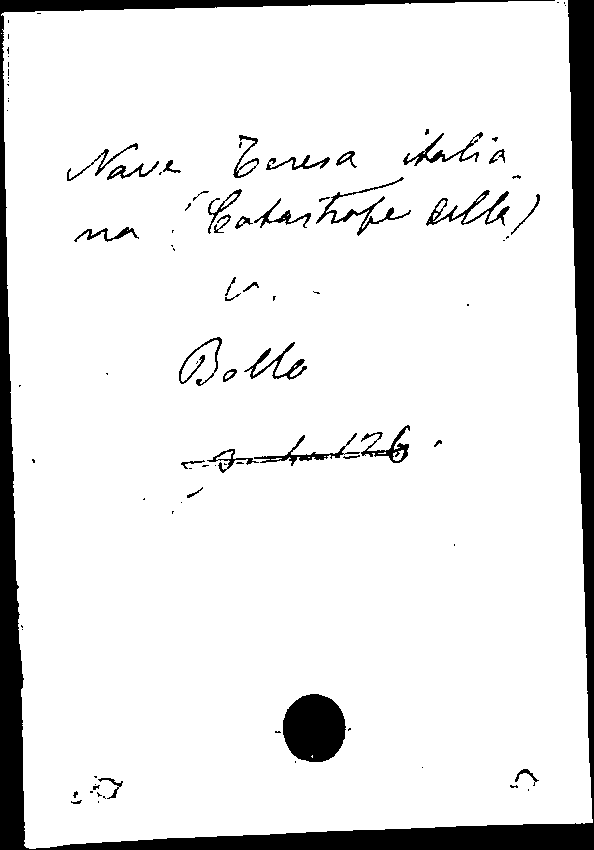 Nave Teresa italia
na (Catastrofe della)
v.
Bollo
126.